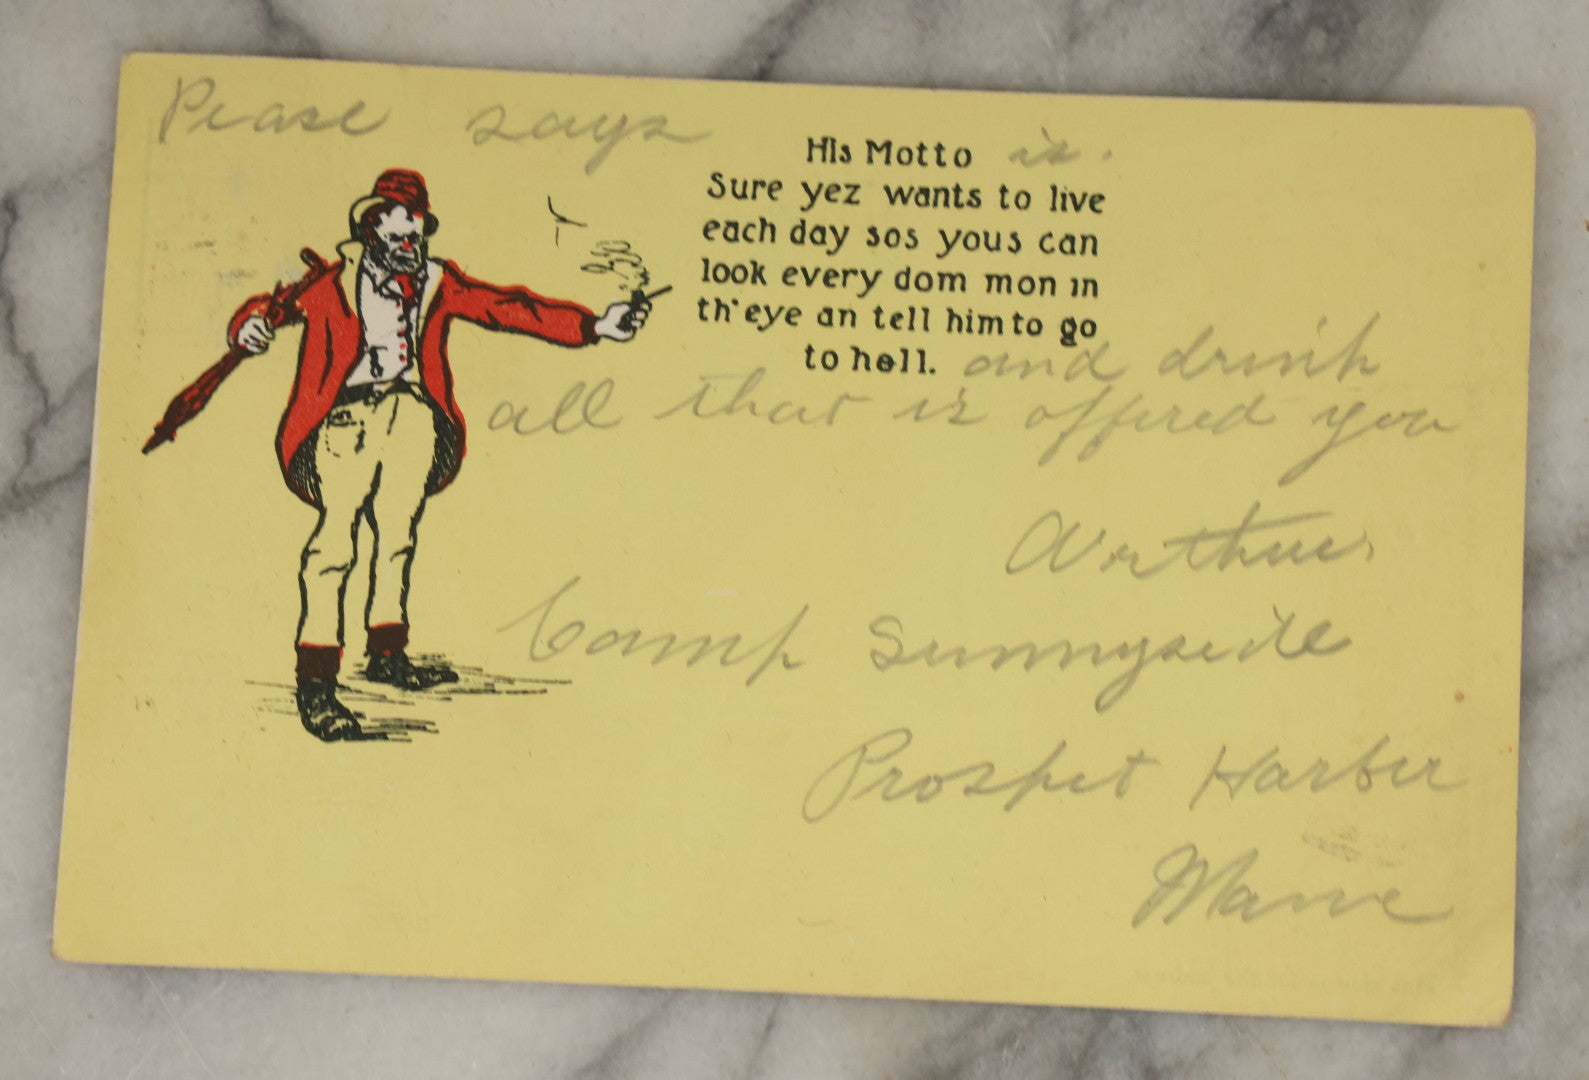 Pease says
His Motto is.
Sure yez wants to live
each day sos yous can
look every dom mon in
th'eye an tell him to go
to hell. and drink
all that is offered you
Arthur.
Camp Sunnyside
Prospet Harber
Maine